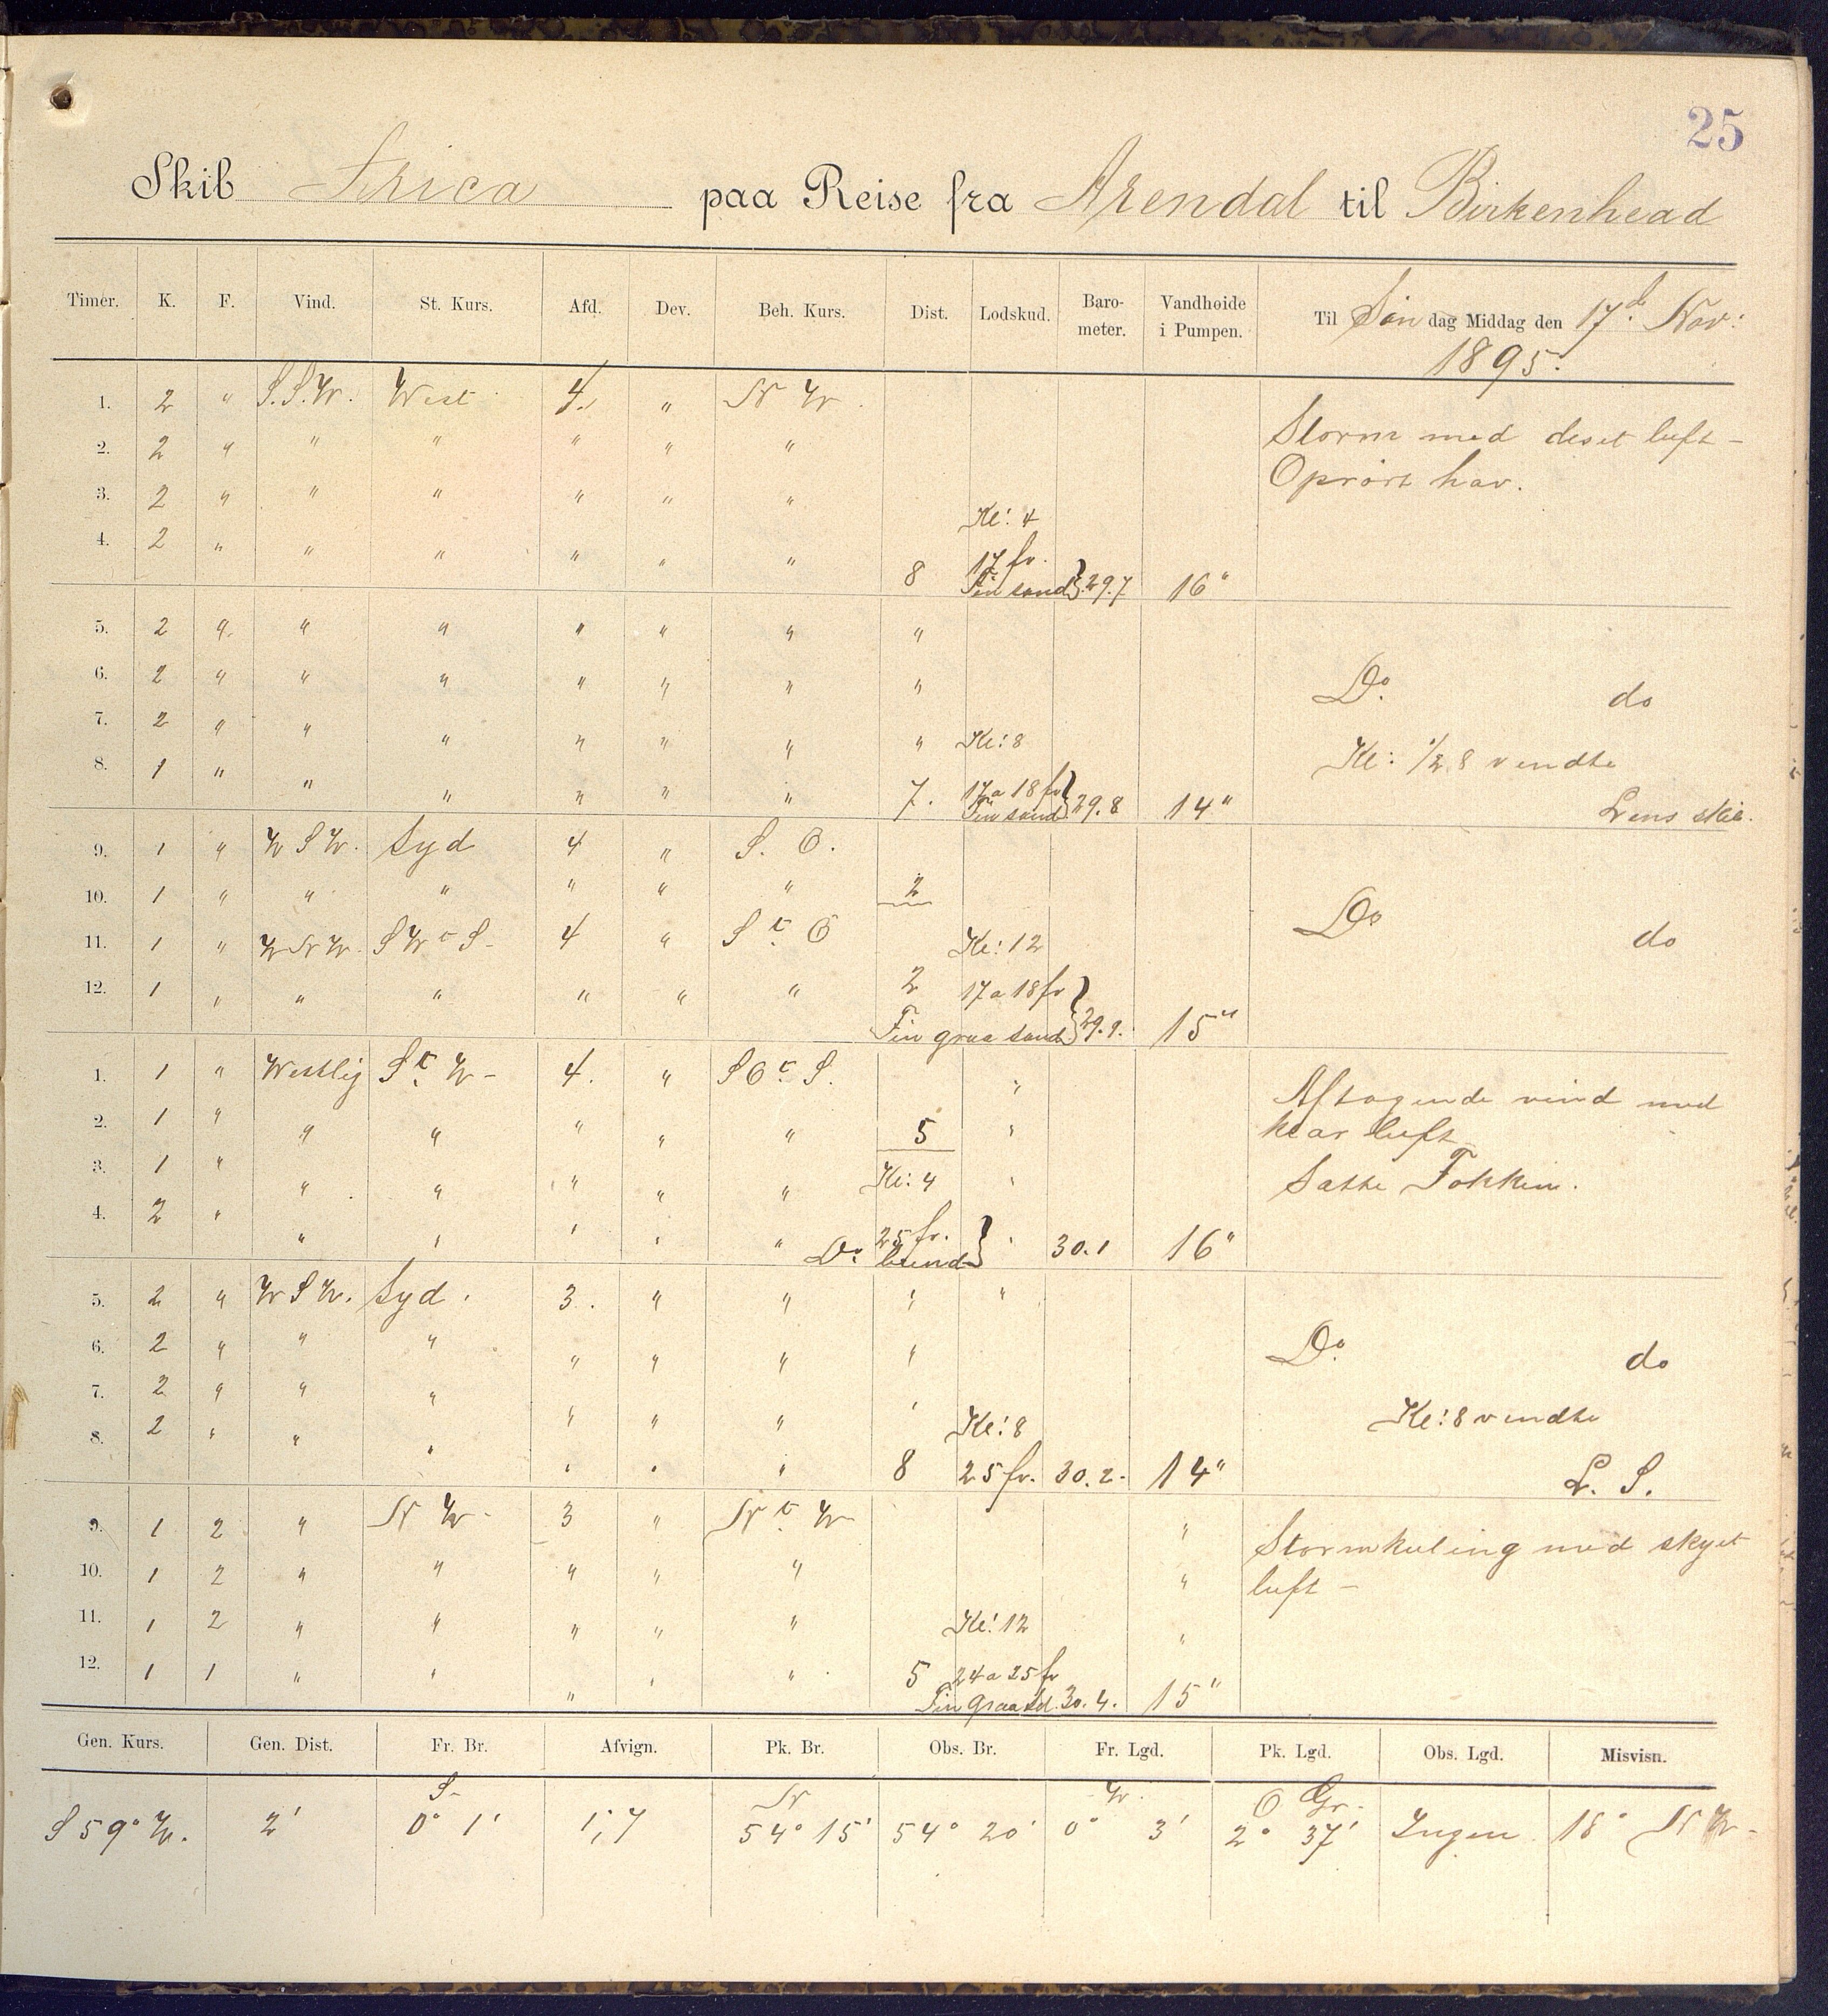 25
Skib Erica paa Reise fra Arendal til Birkenhead
Timer. K. F. Vind. St. Kurs. Afd. Dev. Beh. Kurs. Dist. Lodskud. Baro-meter. Vandhøide i Pumpen. Til Søndag Middag den 17d Nov: 1895.
1. 2 " S.S.W. West 4. " N W. Storm med diset luft -
2. 2 " " " " " " Oprørt hav.
3. 2 " " " " " " Kl: 4
4. 2 " " " " " " 8 17 fv. Fin sand } 29.7 16"
5. 2 " " " " " " "
6. 2 " " " " " " " Do. do
7. 2 " " " " " " " Kl: 8 Kl: 1/2 8 vendte
8. 1 " " " " " " 7. 17 a 18 fv Fin sand } 29.8 14" Lens skib.
9. 1 " W S W. Syd 4 " S. O.
10. 1 " " " " " " 2 Do do
11. 1 " W N W. S W t S - 4 " S t O Kl: 12
12. 1 " " " " " " 2 17 a 18 fv } 29.9. 15"
Fin graa sand
1. 1 " Westlig S t W - 4. " S O t S. " Aftagende vind med
2. 1 " " " " " " 5 " klar luft
3. 1 " " " " " " Kl: 4 " Satte Fokken.
4. 2 " " " " " " 25 fv. } " 30.1 16"
Do. bund
5. 2 " W S W. Syd. 3. " " " "
6. 2 " " " " " " " Do. do
7. 2 " " " " " " " Kl: 8 Kl: 8 vendte
8. 2 " " " " " " 8 25 fv. 30.2. 14" L. S.
9. 1 2 " N W - 3 " N t W " Stormkuling med skyet
10. 1 2 " " " " " " luft -
11. 1 2 " " " " " Kl: 12 "
12. 1 1 " " " " " 5 24 a 25 fv
Fin graa sd. 30.4. 15"
Gen. Kurs. Gen. Dist. Fr. Br. Afvign. Pk. Br. Obs. Br. Fr. Lgd. Pk. Lgd. Obs. Lgd. Misvisn.
S N W. O Gr.
S 59° W. 2' 0° 1' 1,7 54° 15' 54° 20' 0° 3' 2° 37' Ingen 18° N W -